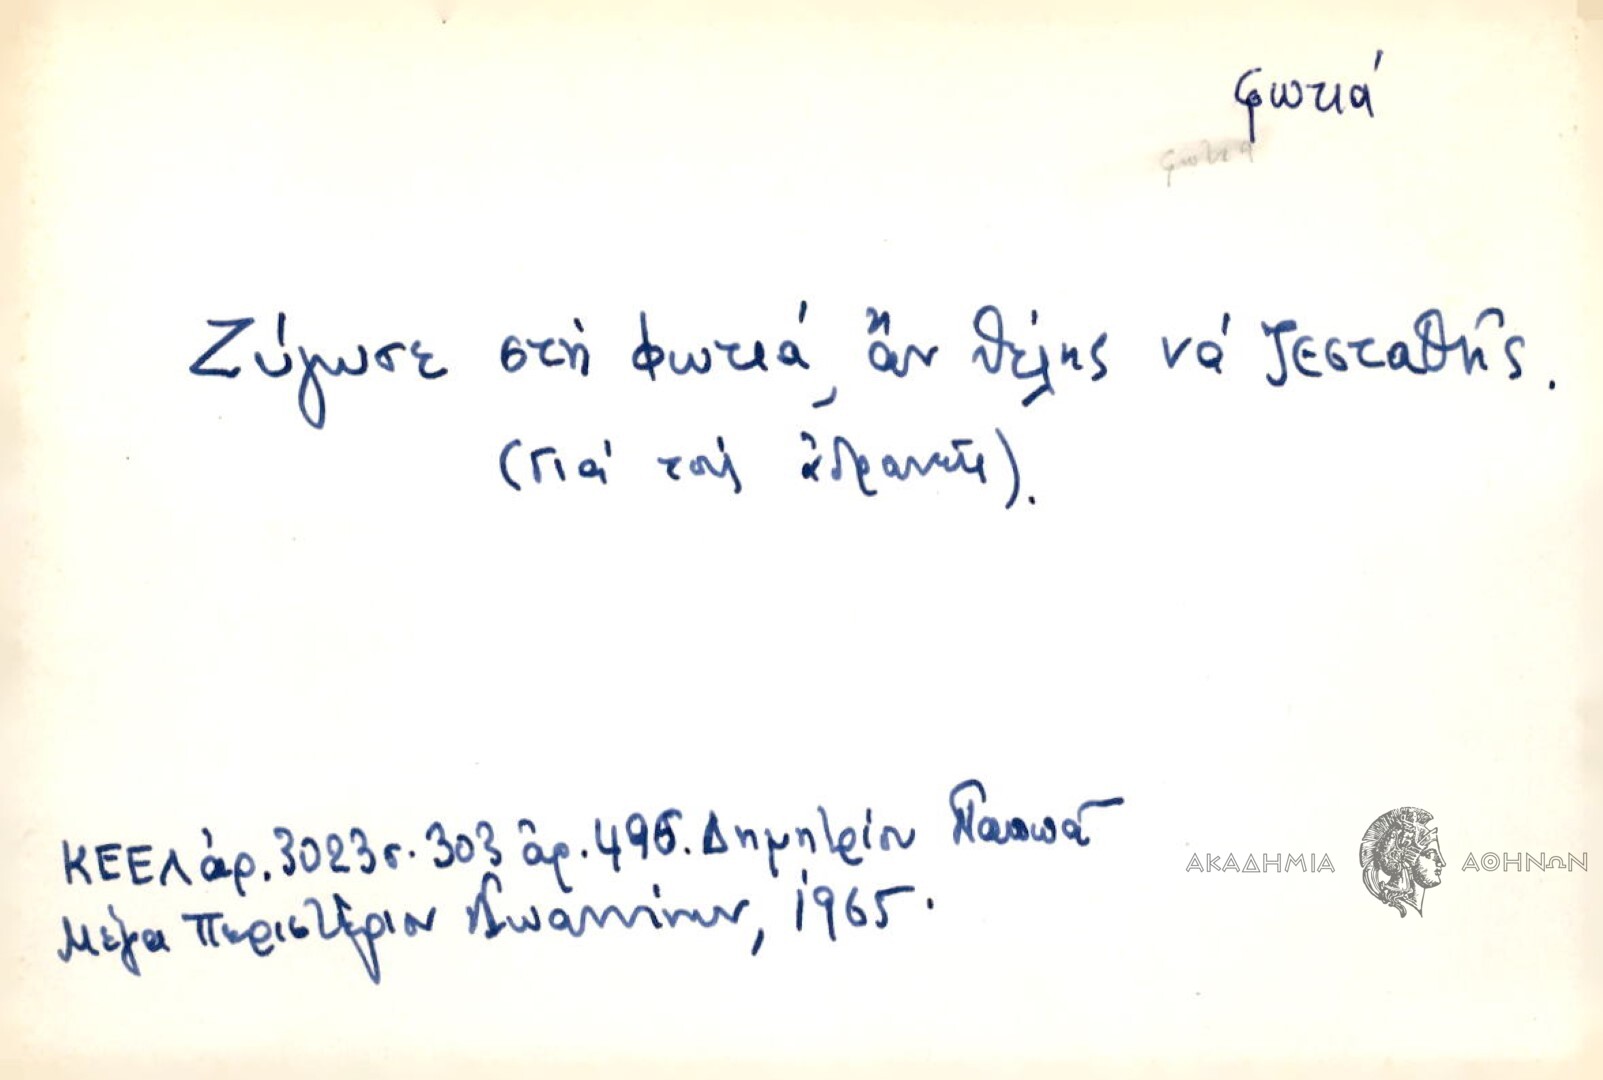 φωτιά
φωτιά
Ζύγωσε στὴ φωτιά, ἂν θέλῃς νά ζεσταθῇς.
(Γιά τοὺς ἀδρανεῖς).
ΚΕΕΛ ἀρ. 3023 σ. 303 ἀρ. 496. Δημητρίου Παππᾶ
Μέγα Περιστέριον Ἰωαννίνων, 1965.
ΑΚΑΔΗΜΙΑ ΑΘΗΝΩΝ